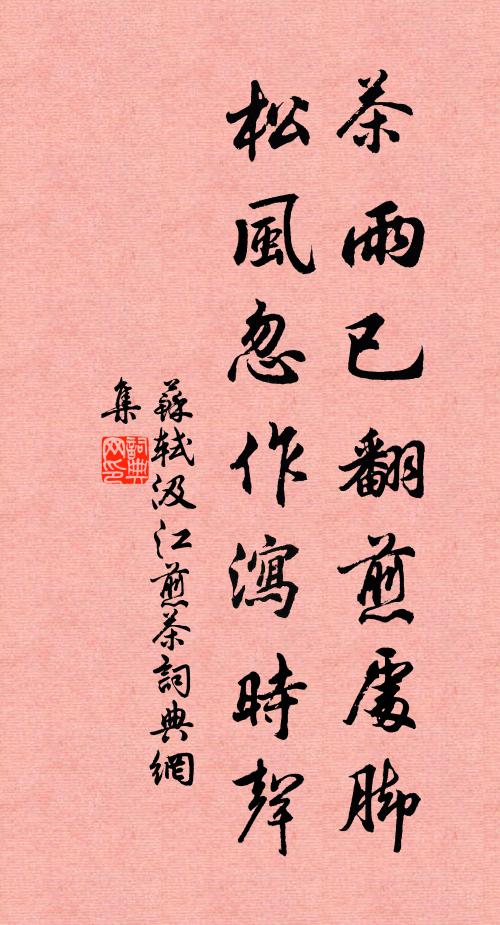 茶雨已翻煎處脚
松風忽作瀉時聲
蘇軾汲江煎茶詞典網
集
詞典網印